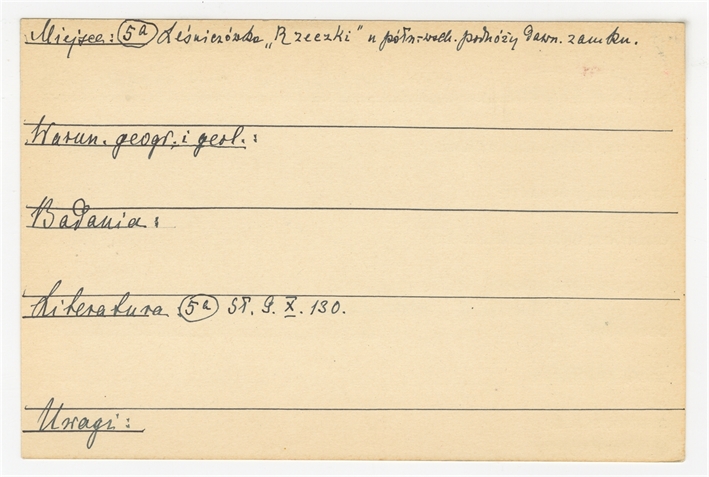 Miejsce: 5a Leśniczówka „Rzeczki" u półn-wsch. podnóży dawn. zamku.
Warun. geogr. i geol.:
Badania:
Literatura 5a St. G. X. 130.
Uwagi: